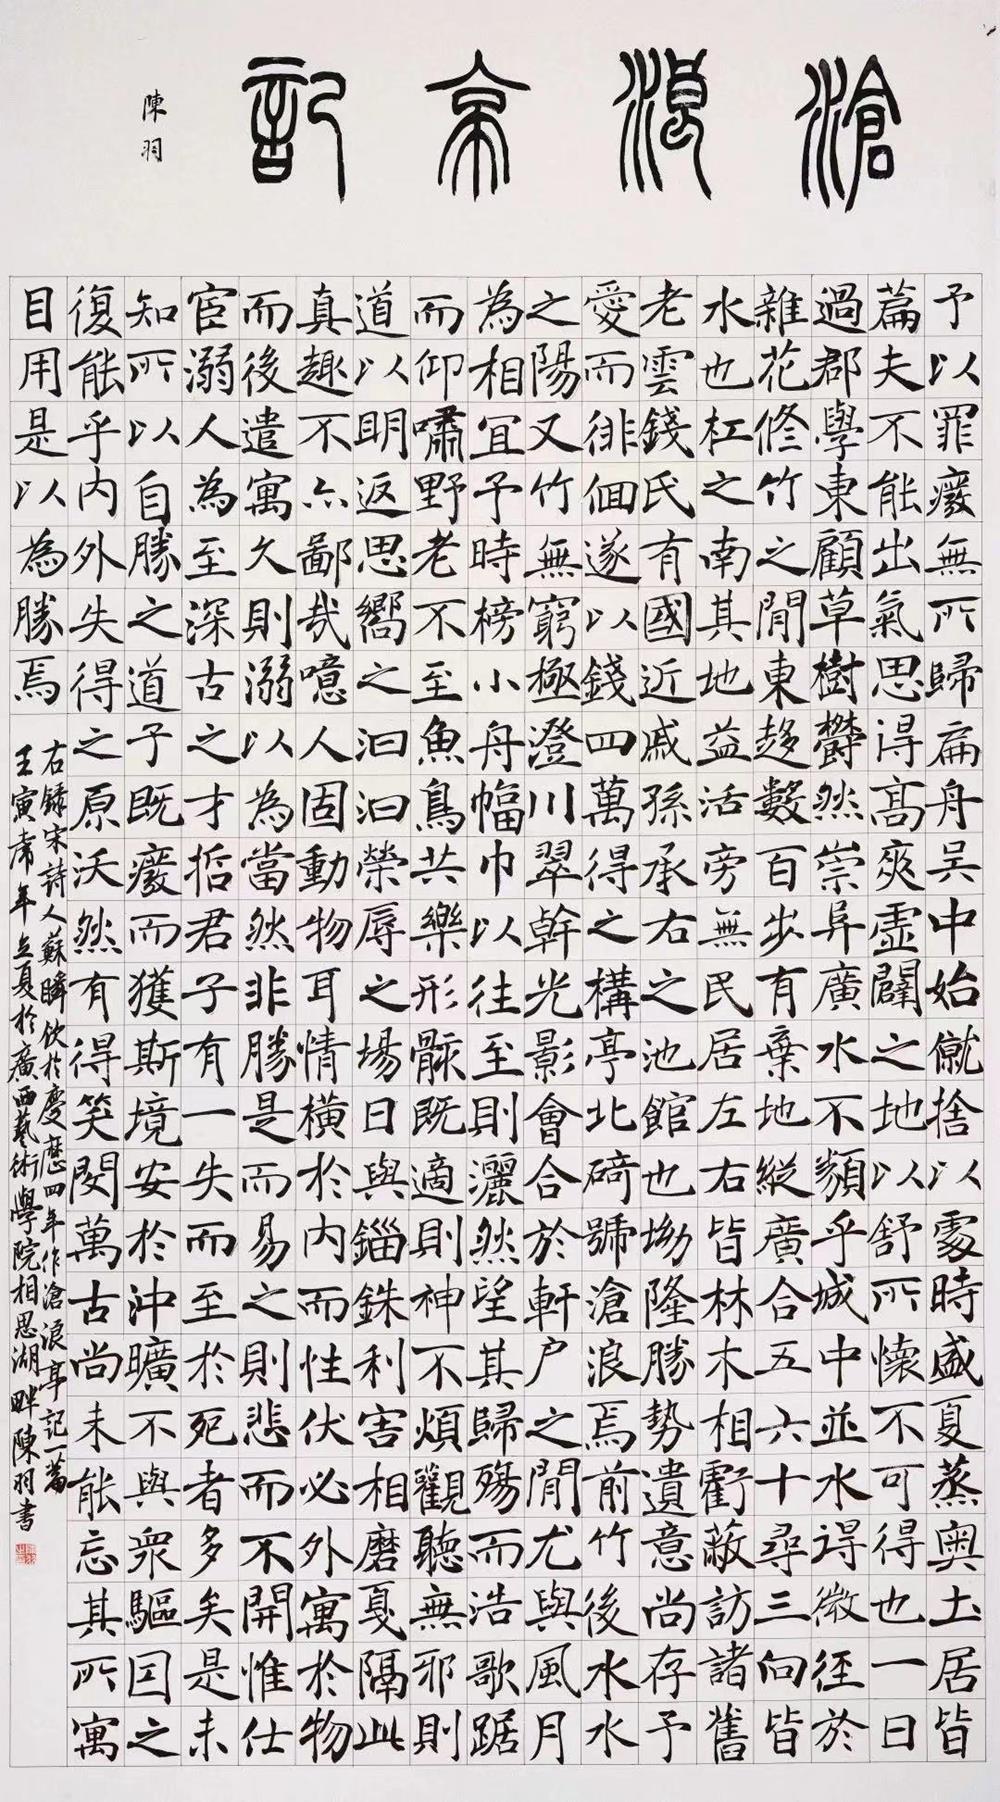 滄浪亭記
陳羽
予以罪癈無所歸扁舟吳中始僦捨以處時盛夏蒸奥土居皆
篇夫不能出氣思得髙爽虛闢之地以舒所懷不可得也一日
過郡學東顧草樹欝然崇阜廣水不類乎城中並水得微徑於
雜花修竹之間東趍數百步有棄地縱廣合五六十尋三向皆
水也杠之南其地益活旁無民居左右皆林木相虧蔽訪諸舊
老雲錢氏有國近戚孫承右之池館也坳隆勝勢遺意尚存予
愛而徘徊遂以錢四萬得之構亭北碕號滄浪焉前竹後水水
之陽又竹無窮極澄川翠幹光影會合於軒户之間尤與風月
為相宜予時榜小舟幅巾以往至則灑然望其歸殤而浩歌踞
而仰嘯野老不至魚鳥共樂形骸既適則神不煩觀聽無邪則
道以明返思嚮之汩汩榮辱之場日與錙銖利害相磨戛隔此
真趣不亦鄙哉噫人固動物耳情橫於內而性伏必外寓於物
而後遣寓久則溺以為當然非勝是而易之則悲而不開惟仕
宦溺人為至深古之才哲君子有一失而至於死者多矣是未
知所以自勝之道予既癈而獲斯境安於沖曠不與衆驅因之
復能乎內外失得之原沃然有得笑閔萬古尚未能忘其所寓
目用是以為勝焉
右錄宋詩人蘇舜欽於慶曆四年作滄浪亭記一篇
壬寅虎年立夏於廣西藝術學院相思湖畔陳羽書